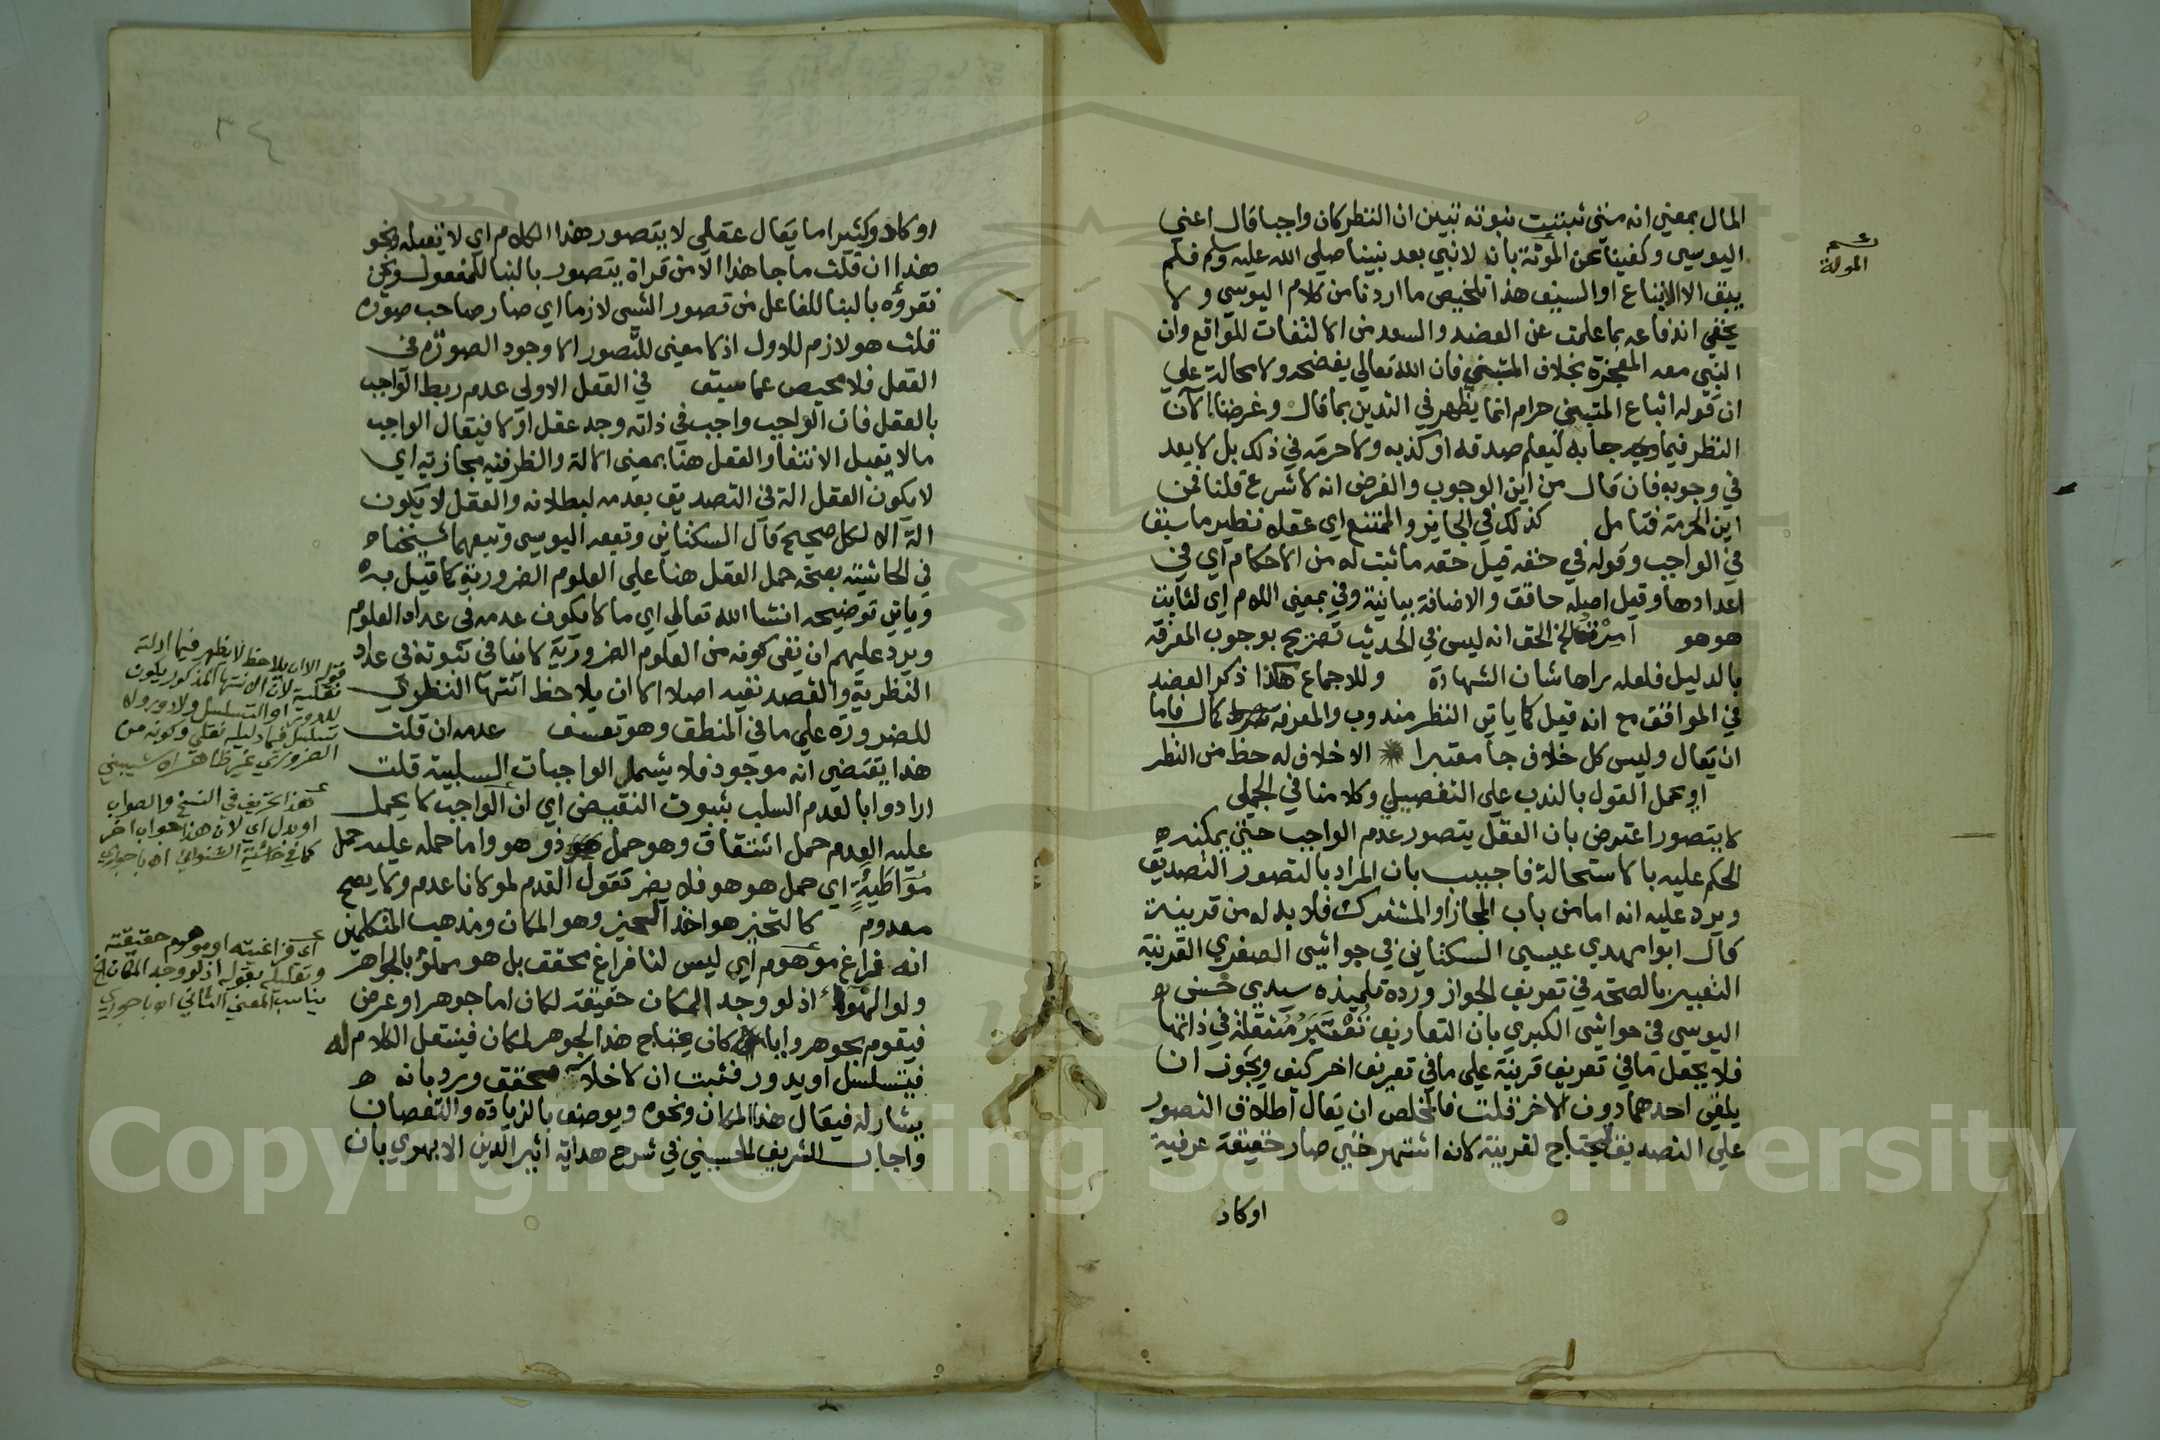 المال بمعني انه متي ثبتت نبوته تبين ان النظر كان واجبا قال اعني
اليوسي وكفينا نحن المؤنة بانه لا نبي بعد نبينا صلي الله عليه وسلم فلم
يبق الا الاتباع او السيف هذا تلخيص ما اردنا من كلام اليوسي ولا
يخفي اندفاعه بما علمت عن العضد والسعد من الالتفات للواقع وان
النبي معه المعجزة بخلاف المتنبي فان الله تعالي يفضحه ولا محالة علي
ان قوله اتباع المتنبي حرام انما يظهر في التدين بما قال وغرضنا الان
النظر فيما جا به ليعلم صدقه او كذبه ولا حرمة في ذلك بل لا يعد
في وجوبه فان قال من اين الوجوب والفرض انه لا شرع قلنا فمن
اين الحرمة فتامل كذلك في الجايز والممتنع اي عقلا نظير ما سبق
في الواجب وقوله في حقه قيل حقه ما ثبت له من الاحكام اي في
اعدادها وقيل اصله حاقق والاضافة بيانية وفي بمعني اللام اي لثابت
هو هو الخ الحق انه ليس في الحديث تصريح بوجوب المعرفة
بالدليل فلعله يراها شان الشهادة وللاجماع هكذا ذكر العضد
في المواقف مع انه قيل كما ياتي النظر مندوب والمعرفة كمال فاما
ان يقال وليس كل خلاف جا معتبرا الا خلاف له حظ من النظر
او يحمل القول بالندب علي التفصيلي وكلامنا في الجملي
لا يتصور اعترض بان العقل يتصور عدم الواجب حتي يمكنه
الحكم عليه بالاستحالة فاجيب بان المراد بالتصور التصديق
ويرد عليه انه اما من باب المجاز او المشترك فلا بد له من قرينة
قال ابو مهدي عيسي السكتاني في حواشي الصغري القرينة
التعبير بالصحة في تعريف الجواز ورده تلميذه سيدي حسن
اليوسي في حواشي الكبري بان التعاريف تعتبر مستقلة في ذاتها
فلا يجعل ما في تعريف قرينة علي ما في تعريف اخر كيف ويجوز ان
يلغي احدهما دون الاخر قلت فالمخلص ان يقال اطلاق التصور
علي التصديق لا يحتاج لقرينة لانه اشتهر حتي صار حقيقة عرفية
او كاد
او كاد وكثيرا ما يقال عقلي لا يتصور هذا الكلام اي لا يقبله ونحو
هذا ان قلت ما جا هذا الا من قراة يتصور بالبنا للمفعول ونحن
نقرؤه بالبنا للفاعل من تصور الشي لازما اي صار صاحب صورة
قلت هو لازم للاول اذ لا معني للتصور الا وجود الصورة في
العقل فلا محيص عما سبق في العقل الاولي عدم ربط الواجب
بالعقل فان الواجب واجب في ذاته وجد عقل او لا فيقال الواجب
ما لا يقبل الانتفا والعقل هنا بمعني الالة والظرفية مجازية اي
لا يكون العقل الة في التصديق بعدمه لبطلانه والعقل لا يكون
الة الا لكل صحيح قال السكتاني وتبعه اليوسي وتبعهما شيخنا
في الحاشية بصحة حمل العقل هنا علي العلوم الضرورية كما قيل به
وياتي توضيحه ان شا الله تعالي اي ما لا يكون عدمه في عداد العلوم
ويرد عليهم ان نفي كونه من العلوم الضرورية لا ينافي ثبوته في عداد
النظرية والقصد نفيه اصلا الا ان يلاحظ انتها النظري
للضرورة علي ما في المنطق وهو تعسف عدمه ان قلت
هذا يقتضي انه موجود فلا يشمل الواجبات السلبية قلت
ارادوا بالعدم السلب بثبوت النقيض اي ان الواجب لا يحمل
عليه العدم حمل اشتقاق وهو حمل ذو هو واما حمله عليه حمل
مواطئة اي حمل هو هو فلا يضر تقول القدم لو كانا عدم ولا يصح
معدوم كالتحيز هو اخذ الحيز وهو المكان ومذهب المتكلمين
انه فراغ موهوم اي ليس لنا فراغ محقق بل هو مملؤ بالجواهر
ولو الهوا اذ لو وجد المكان حقيقة لكان اما جوهرا او عرض
فيقوم بجوهر وايا كان يحتاج هذا الجوهر لمكان فينتقل الكلام له
فيتسلسل او يدور فثبت ان لا خلا محقق ورد بانه
يشار له فيقال هذا المكان ونحوه ويوصف بالزيادة والنقصان
واجاب الشريف الحسيني في شرح هداية اثير الدين الابهري بان
قوله الا ان يلاحظ لا يظهر فيما ادلته
نقلية لان الانتها المذكور يكون
للدور او التسلسل ولا دور ولا
تسلسل فيما دليله نقلي وكونه من
الضروري غير ظاهر اه شيبني
هذا تحريف في النسخ والصواب
او بدل اي لان هذا جواب اخر
كما في حاشية الشنواني اه باجوري
اي فراغيته او موهوم حقيقته
وتعليله بقوله اذ لو وجد المكان الخ
يناسب المعني الثاني اه باجوري
المولة